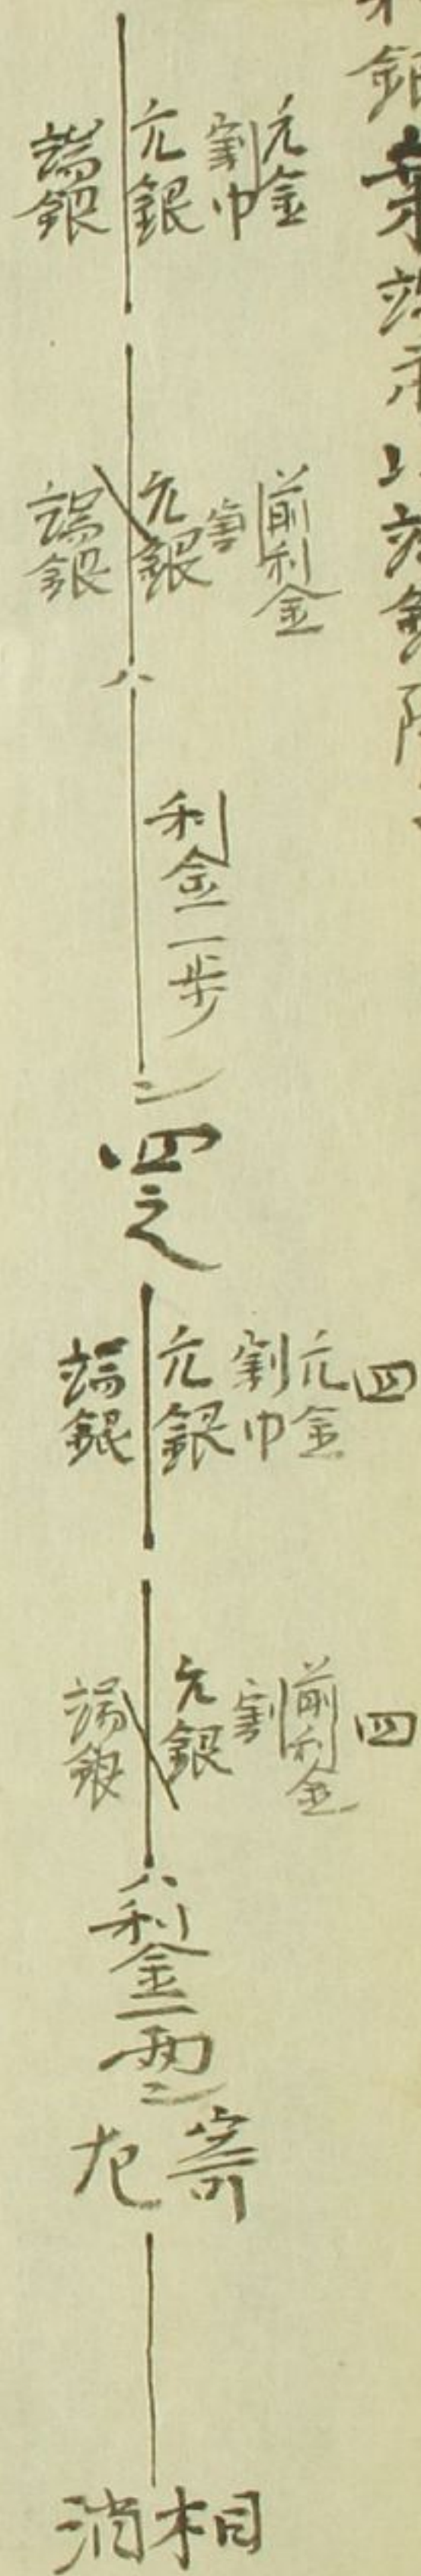 元金
割巾
元銀
端銀
前利金
割
元銀
端銀
八
利金一步
ニ
四之
四
元金
割巾
元銀
端銀
四
前利金
割
元銀
端銀
八
利金一両
ニ
寄
左
相
消